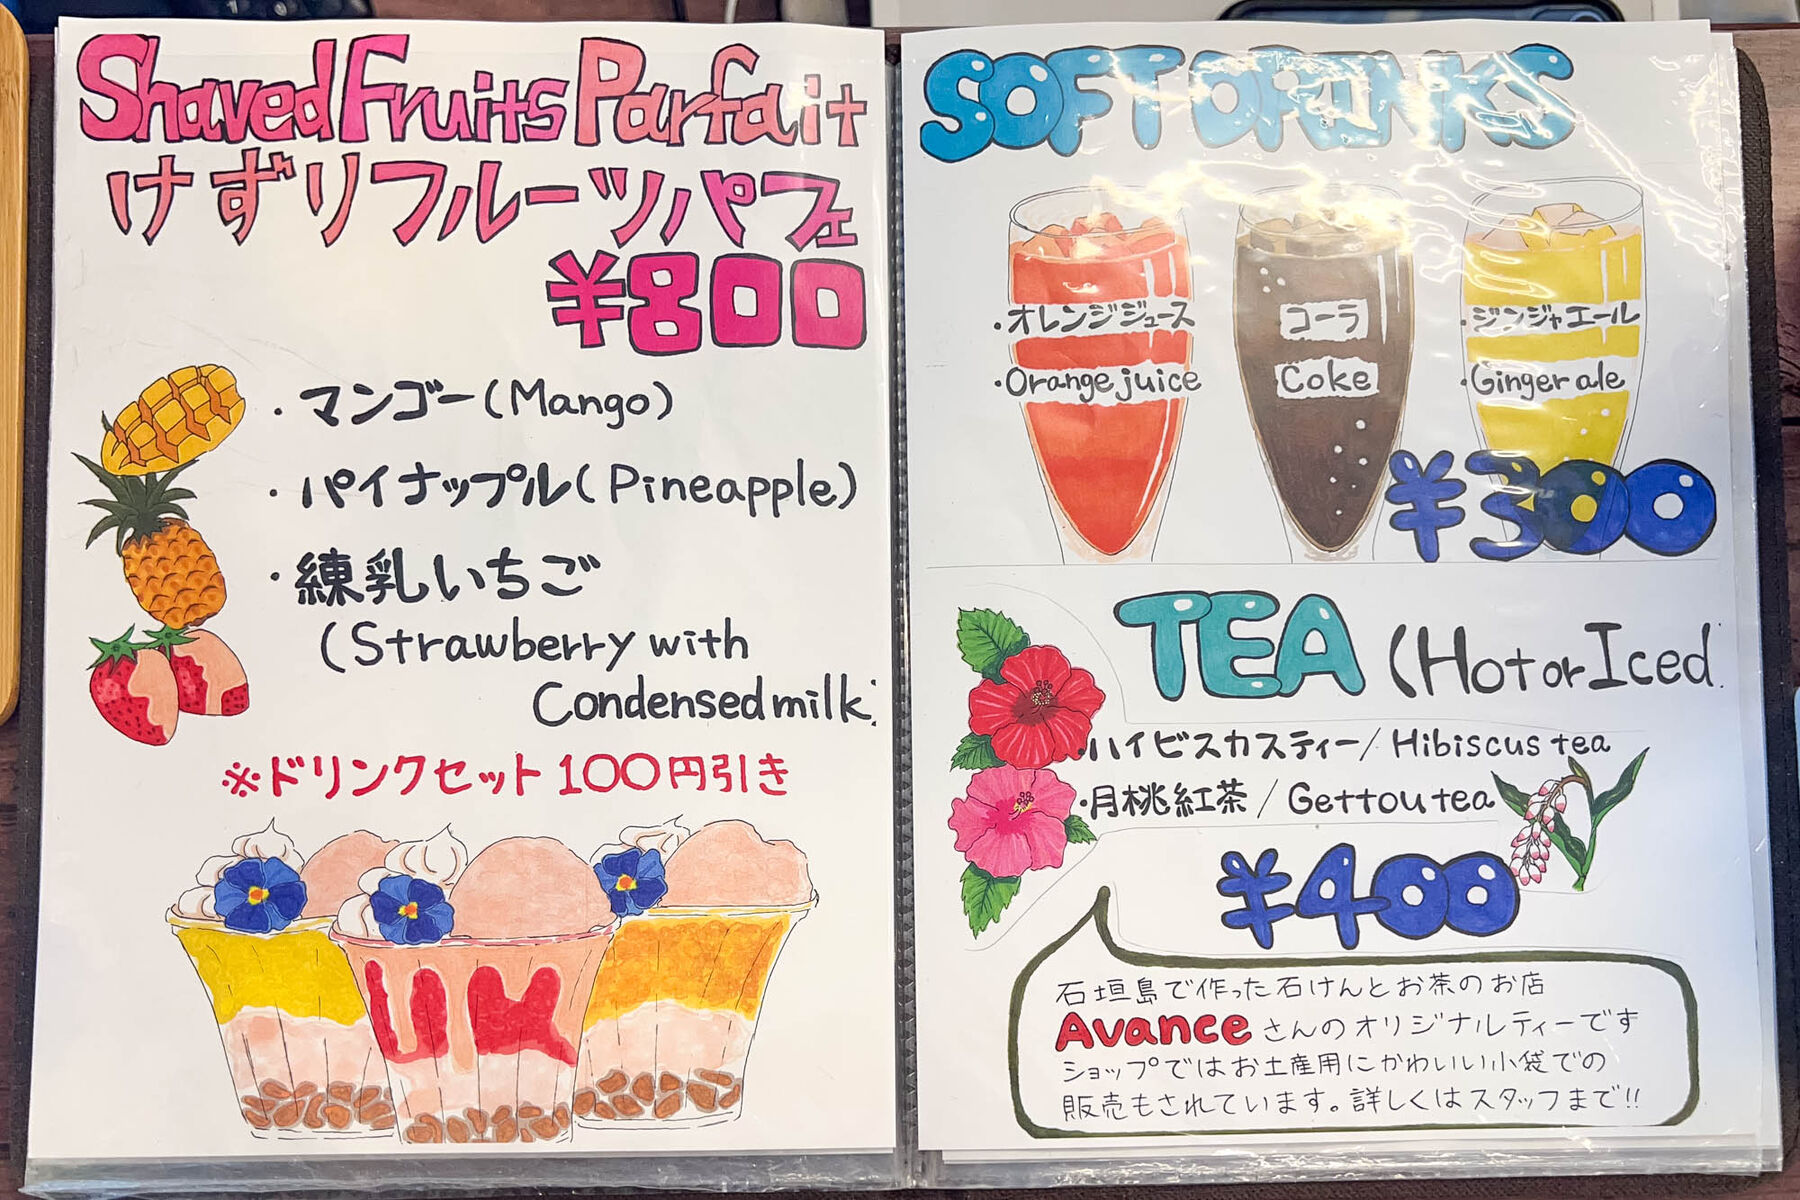 Shaved Fruits Parfait
けずりフルーツパフェ
¥800
・マンゴー(Mango)
・パイナップル(Pineapple)
・練乳いちご
(Strawberry with
Condensed milk
※ドリンクセット100円引き
SOFT DRINKS
・オレンジジュース
・Orange juice
コーラ
Coke
・ジンジャエール
・Ginger ale
¥300
TEA (Hot or Iced
・ハイビスカスティー/Hibiscus tea
・月桃紅茶/Gettou tea
¥400
石垣島で作った石けんとお茶のお店
Avanceさんのオリジナルティーです
ショップではお土産用にかわいい小袋での
販売もされています。詳しくはスタッフまで!!